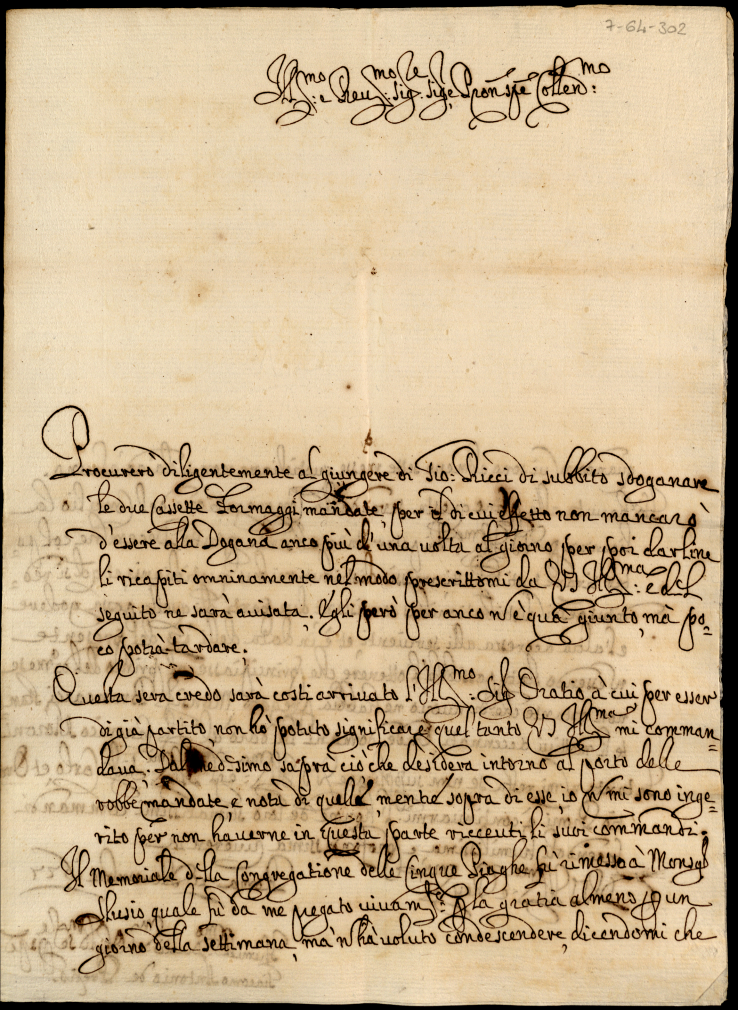 7-64-302
Ill:mo e Reu:mo Sig:re Sig:re Pron̄ spē Collen:mo
Procurerò diligentemente al giungere di Gio: Ricci di subbito sdoganare
le due Cassette Formaggi mandate, per il di cui effetto non mancarò
d'essere alla Dogana anco più d'una uolta al giorno per poi darline
li ricapiti omninamente nel modo prescrittomi da VS Ill:ma e del
seguito ne sarà auisata. Egli però per anco n̄ è qua giunto, mà po=
co potrà tardare.
Questa sera credo sarà costì arriuato l'Ill:mo Sig Oratio, à cui per esser
di già partito non hò potuto significare quel tanto VS Ill:ma mi comman=
daua. Dal medesimo saprà ciò che desidera intorno al porto delle
robbe mandate, e nota di quelle, mentre sopra di esse io n̄ mi sono inge=
rito per non hauerne in questa parte riceuuti li suoi commandi.
Il Memoriale della Congregatione delle Cinque Piaghe fù rimesso à Monsg
Slusio quale fù da me pregato viuam:te p la gratia almeno p un
giorno della settimana, mà n̄ hà voluto condescendere, dicendomi che